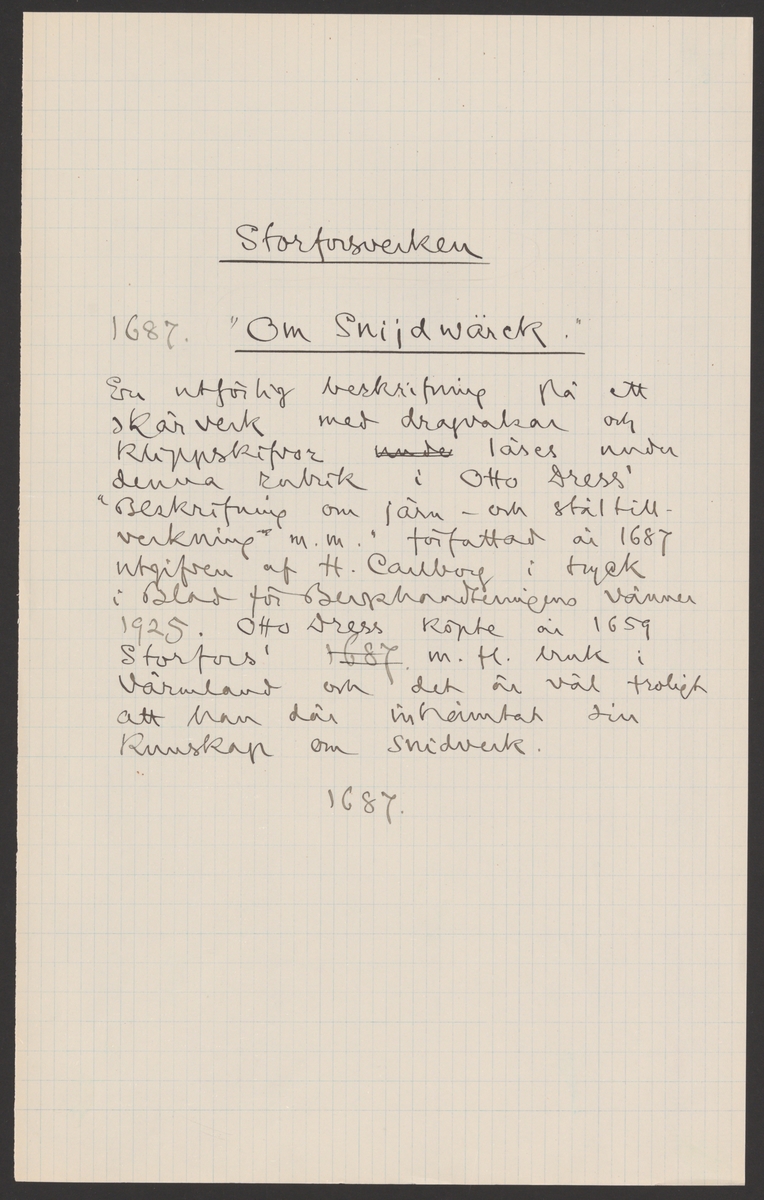 Storforsverken
1687. "Om Snijdwärck."
En utförlig beskrifning på ett
skärverk med dragvalsar och
klippskifvor unde läses under
denna rubrik i Otto Dress'
"Beskrifning om järn- och ståltill-
verkning" m.m." författad år 1687
utgifven af H. Carlborg i tryck
i Blad för Bergshandteringens Vänner
1925. Otto Dress köpte år 1659
Storfors' 1687. m. fl. bruk i
Värmland och det är väl troligt
att han där inhämtat sin
kunskap om snidverk.
1687.